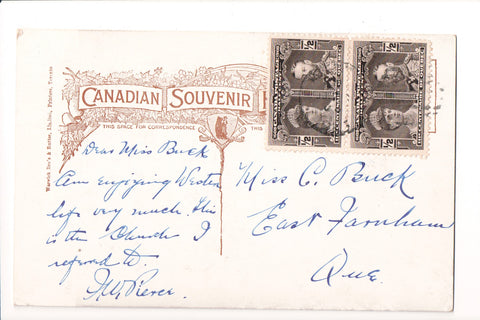 CANADIAN SOUVENIR P
THIS SPACE FOR CORRESPONDENCE THIS
Warwick Bro's & Rutter, Limited, Printers, Toronto
½ ½
½ ½
Dear Miss Buck
Am enjoying Western
life very much. This
is the Church I
refered to.
Pierce.
Miss C. Buck
East Farnham
Que.